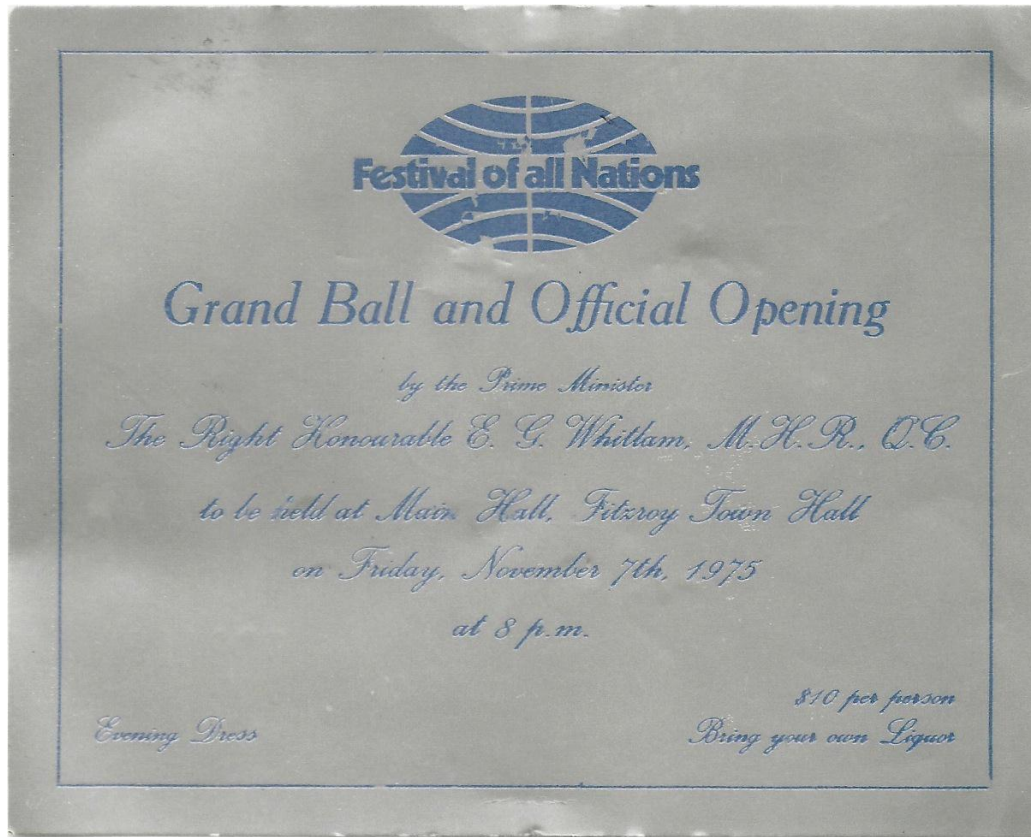 Festival of all Nations
Grand Ball and Official Opening
by the Prime Minister
The Right Honourable E. G. Whitlam, M.H.R., Q.C.
to be held at Main Hall, Fitzroy Town Hall
on Friday, November 7th, 1975
at 8 p.m.
$10 per person
Evening Dress
Bring your own Liquor